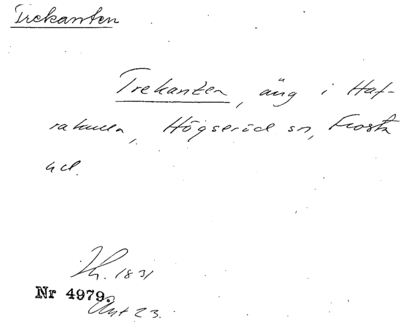 Trekanten
Trekanten, äng i Haf-
ralulla, Högseröd sn, Frosta
hd.
Th. 1831
Nr 4979.
Akt 23.